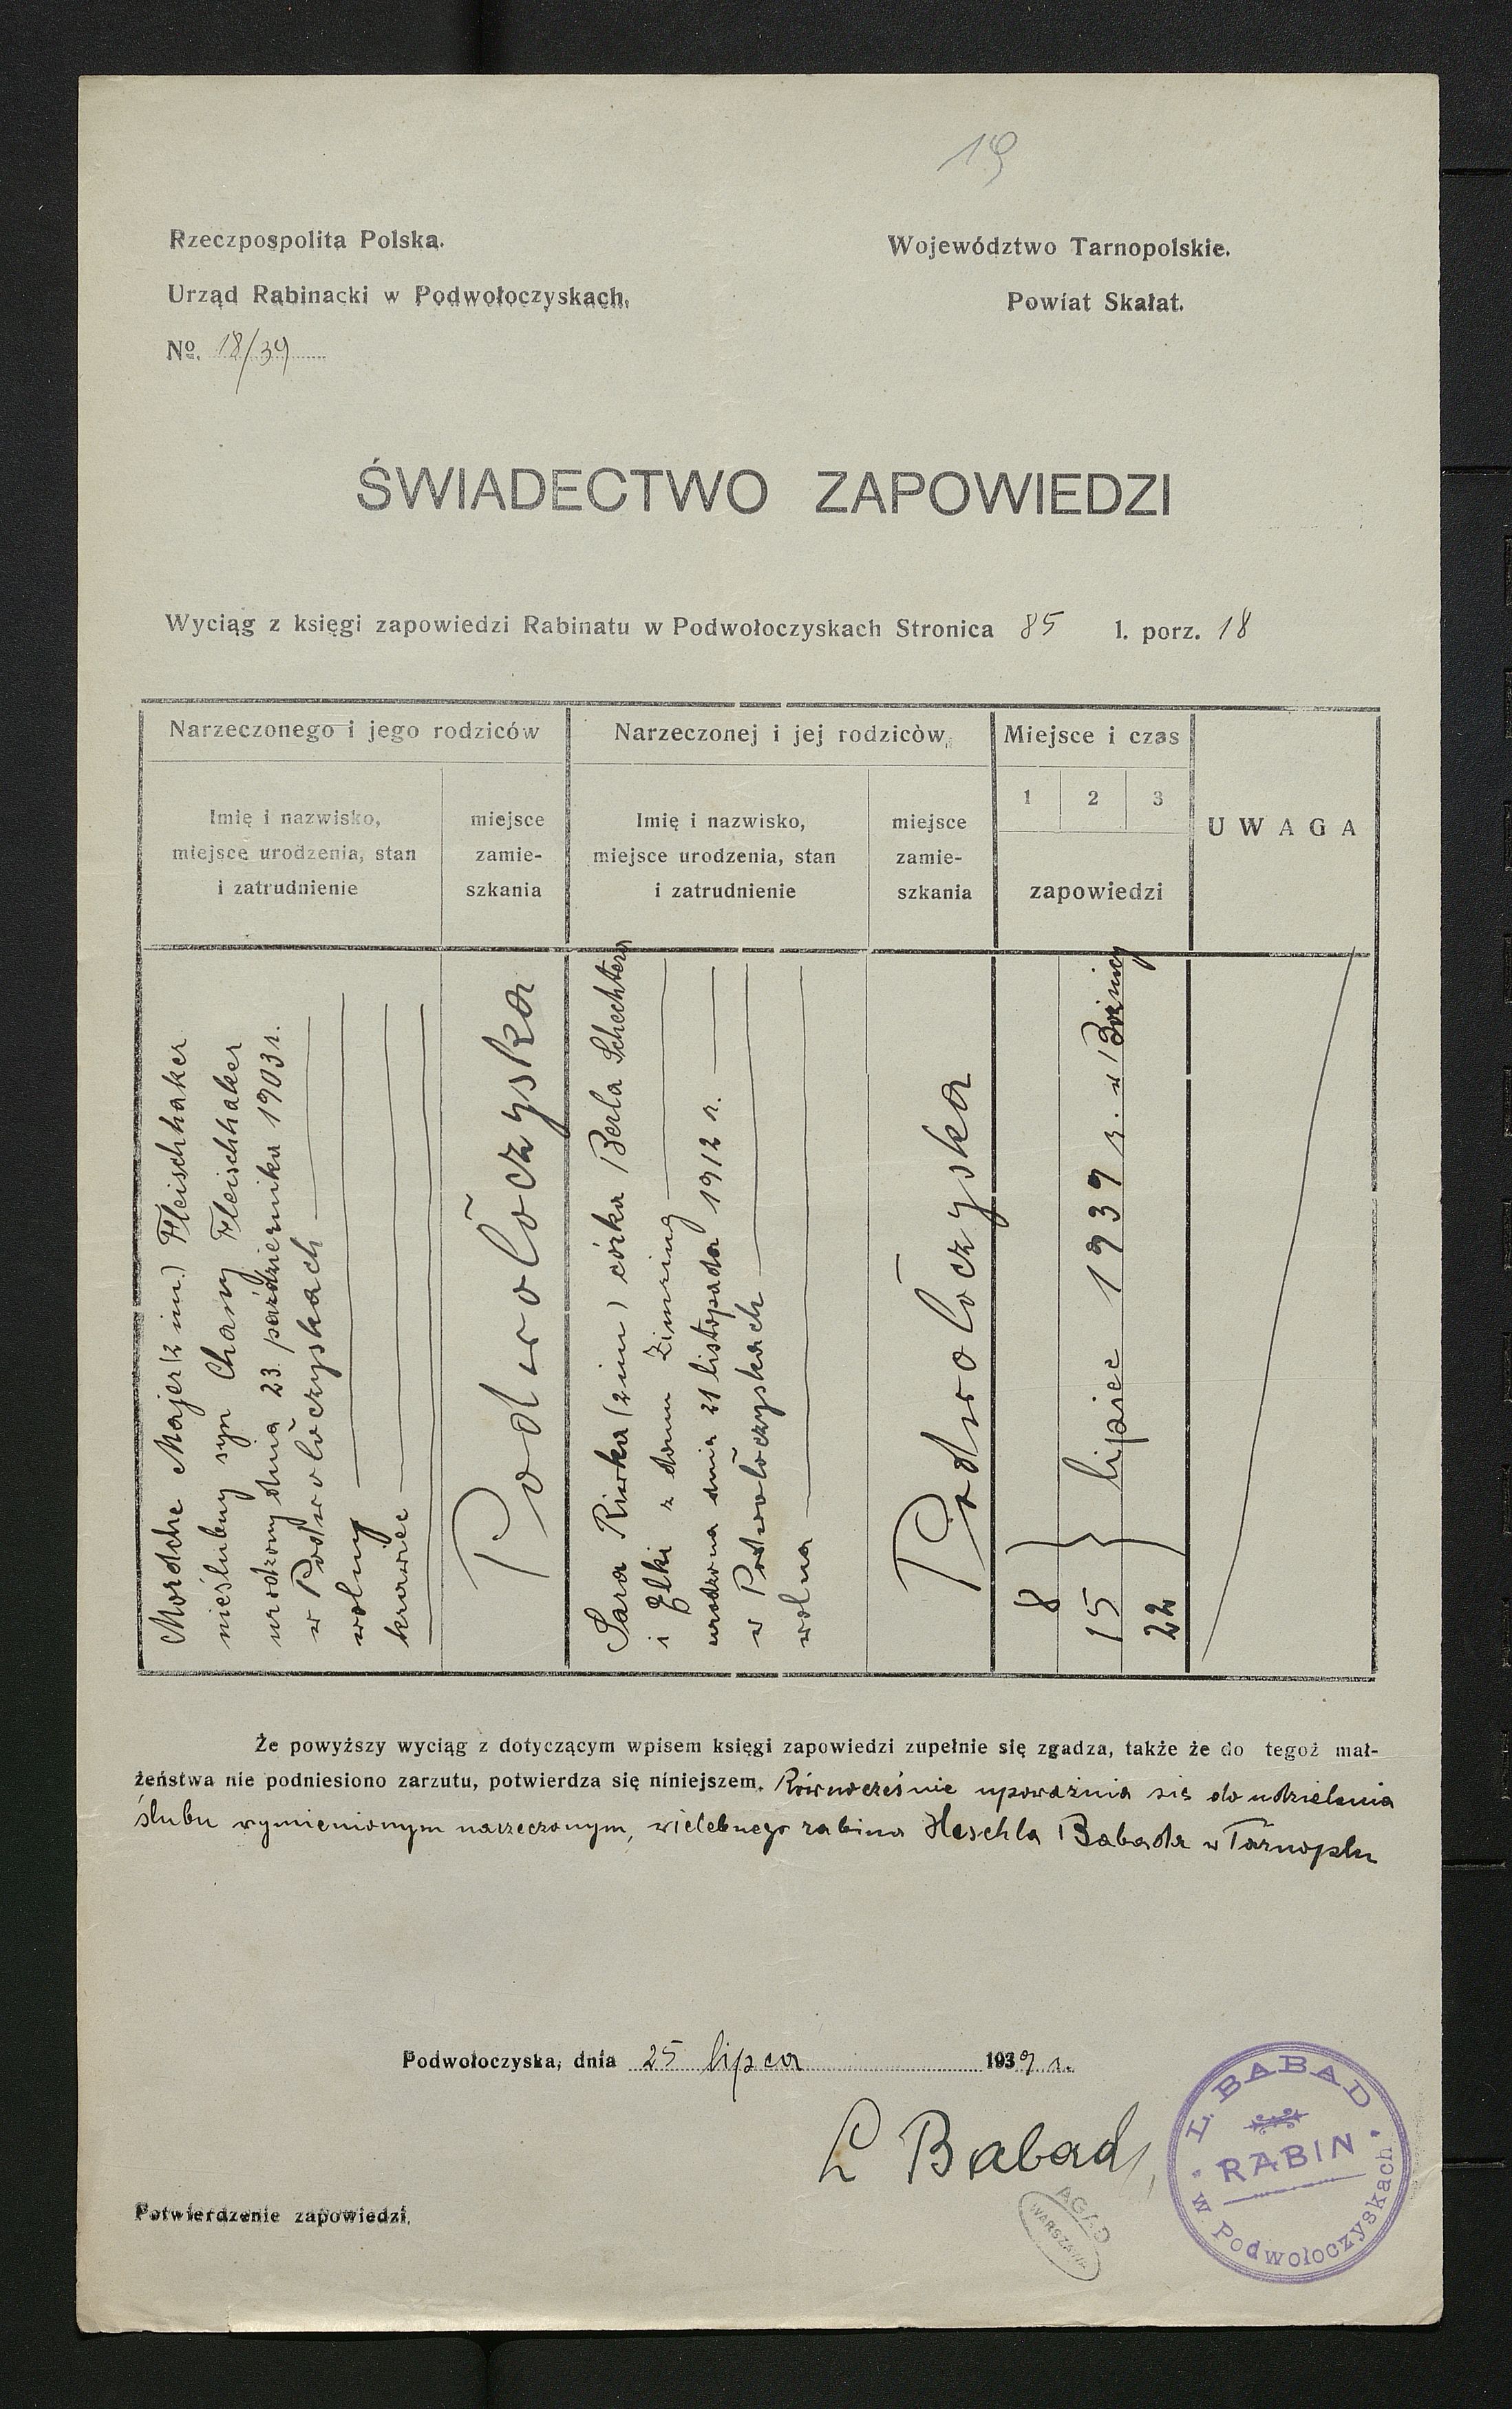 19
Rzeczpospolita Polska.
Województwo Tarnopolskie.
Urząd Rabinacki w Podwołoczyskach.
Powiat Skałat.
№. 18/39
ŚWIADECTWO ZAPOWIEDZI
Wyciąg z księgi zapowiedzi Rabinatu w Podwołoczyskach Stronica 85 l. porz. 18
Narzeczonego i jego rodziców
Narzeczonej i jej rodziców
Miejsce i czas
1 2 3
zapowiedzi
UWAGA
Imię i nazwisko,
miejsce urodzenia, stan
i zatrudnienie
miejsce
zamie-
szkania
Imię i nazwisko,
miejsce urodzenia, stan
i zatrudnienie
miejsce
zamie-
szkania
Mordche Majer (2 im.) Fleischhaker
nieślubny syn Chany Fleischhaker
urodzony dnia 23 października 1903 r.
w Podwołoczyskach
wolny
krawiec
Podwołoczyska
Sara Riwka (2 im) córka Berla Schechtera
i Elki z domu Zimring
urodzona dnia 21 listopada 1912 r.
w Podwołoczyskach
wolna
Podwołoczyska
8
15 } lipiec 1939 r. w Bóżnicy
22
Że powyższy wyciąg z dotyczącym wpisem księgi zapowiedzi zupełnie się zgadza, także że do tegoż mał-
żeństwa nie podniesiono zarzutu, potwierdza się niniejszem. Równocześnie upoważnia się do udzielenia
ślubu wymienionym narzeczonym, wielebnego rabina Heschla Babada w Tarnopolu
Podwołoczyska, dnia 25 lipca 1939 r.
L Babad
L. BABAD
RABIN
w Podwołoczyskach
AGAD
WARSZAWA
Potwierdzenie zapowiedzi.